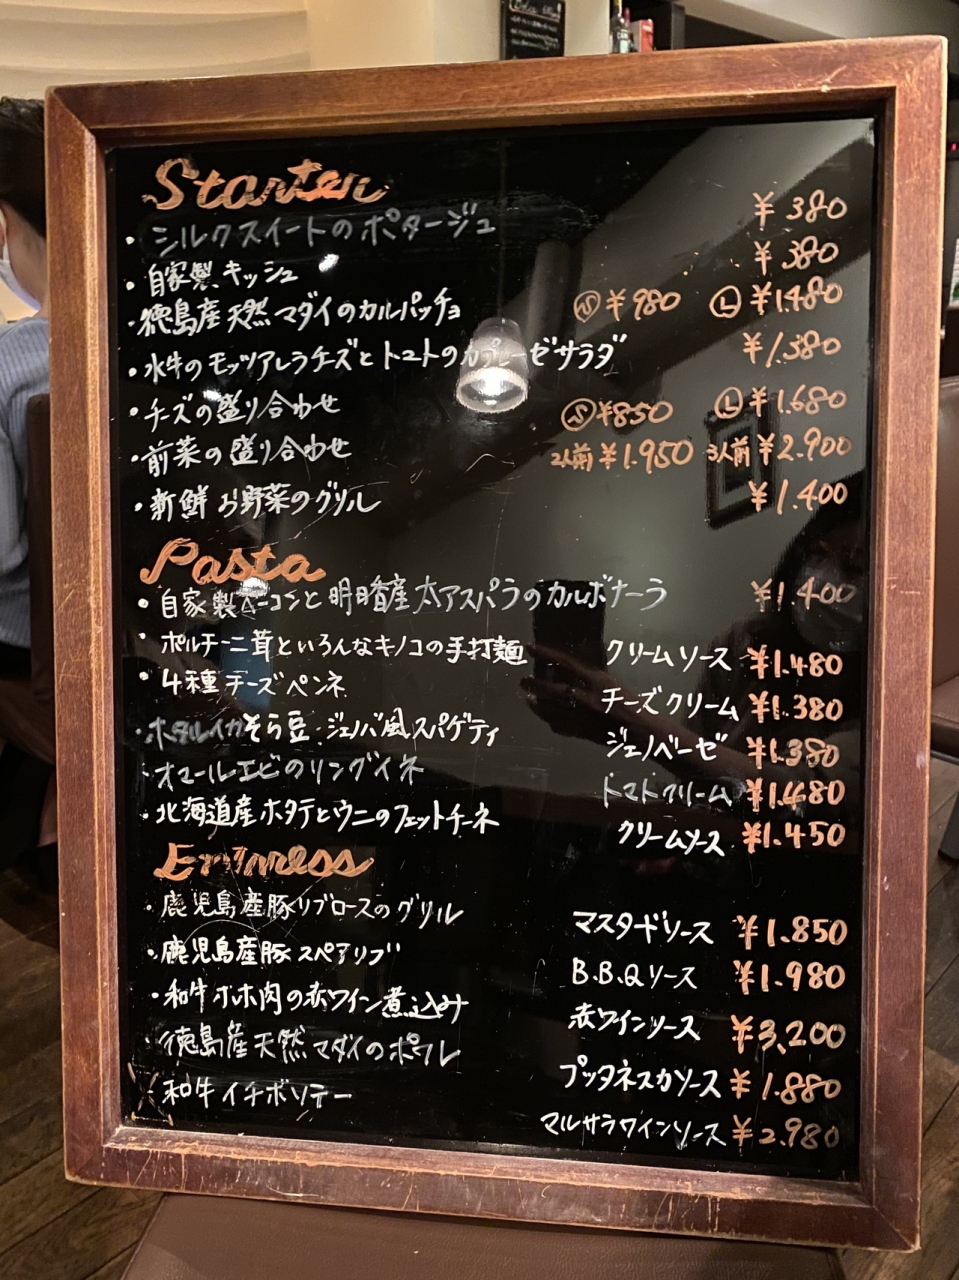 Starter
・シルクスイートのポタージュ ¥380
・自家製キッシュ ¥380
・徳島産天然マダイのカルパッチョ Ⓢ¥980 Ⓛ¥1480
・水牛のモッツアレラチーズとトマトのカプレーゼサラダ ¥1.380
・チーズの盛り合わせ Ⓢ¥850 Ⓛ¥1.680
・前菜の盛り合わせ 2人前¥1.950 3人前¥2.900
・新鮮お野菜のグリル ¥1.400
Pasta
・自家製ベーコンと明日香産太アスパラのカルボナーラ ¥1.400
・ポルチーニ茸といろんなキノコの手打麺 クリームソース ¥1.480
・4種チーズペンネ チーズクリーム ¥1.380
・ホタルイカそら豆・ジェノバ風スパゲティ ジェノベーゼ ¥1.380
・オマールエビのリングイネ トマトクリーム ¥1.680
・北海道産ホタテとウニのフェットチーネ クリームソース ¥1.450
・鹿児島産豚リブロースのグリル マスタードソース ¥1.850
・鹿児島産豚スペアリブ B.B.Qソース ¥1.980
・和牛ホホ肉の赤ワイン煮込み 赤ワインソース ¥3,200
・徳島産天然マダイのポワレ プッタネスカソース ¥1.880
・和牛イチボソテー マルサラワインソース ¥2.980